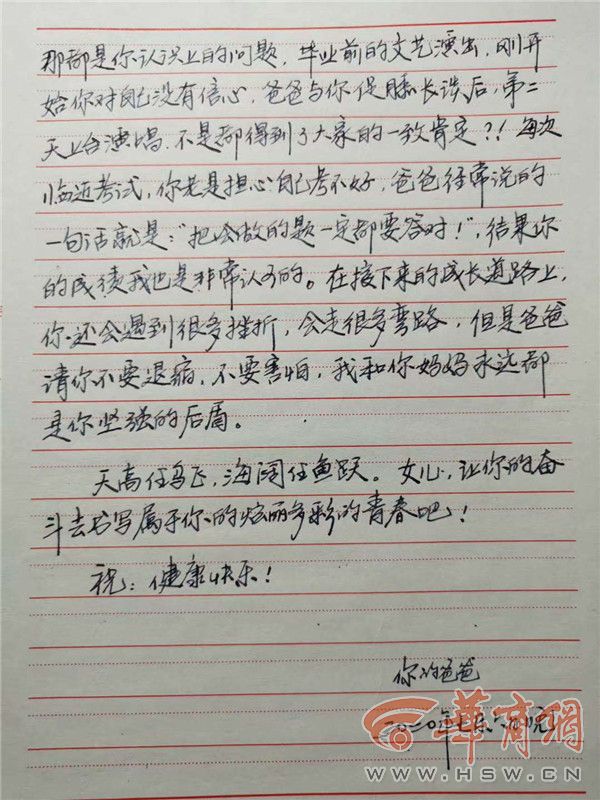 那都是你认识上的问题，毕业前的文艺演出，刚开
始你对自己没有信心，爸爸与你促膝长谈后，第二
天上台演唱，不是都得到了大家的一致肯定?！每次
临近考试，你老是担心自己考不好，爸爸经常说的
一句话就是：“把会做的题一定都要答对！”，结果你
的成绩我也是非常认可的。在接下来的成长道路上，
你还会遇到很多挫折，会走很多弯路，但是爸爸
请你不要退缩，不要害怕，我和你妈妈永远都
是你坚强的后盾。
天高任鸟飞，海阔任鱼跃。女儿，让你的奋
斗去书写属于你的炫丽多彩的青春吧！
祝：健康快乐！
你的爸爸
二〇二〇年七月
華商網
WWW.HSW.CN